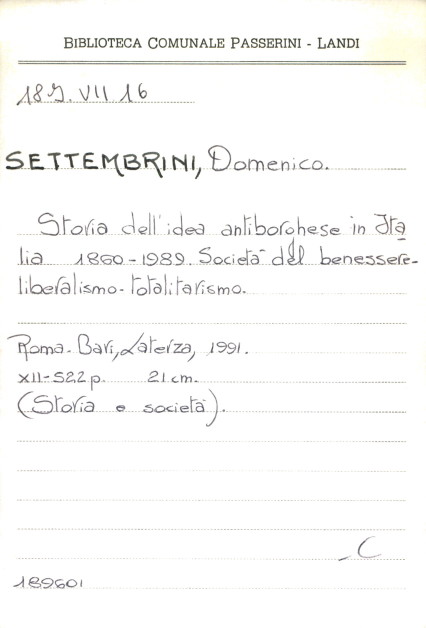 BIBLIOTECA COMUNALE PASSERINI - LANDI
18 J. VII 16
SETTEMBRINI, Domenico.
Storia dell'idea antiborghese in Ita
lia 1860-1989. Società del benessere-
liberalismo-totalitarismo.
Roma-Bari, Laterza, 1991.
XII-522 p. 21 cm.
(Storia e società).
C
189601